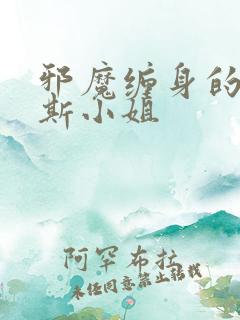 邪魔缠身的
斯小姐
阿罕布拉
未经同意禁止转载